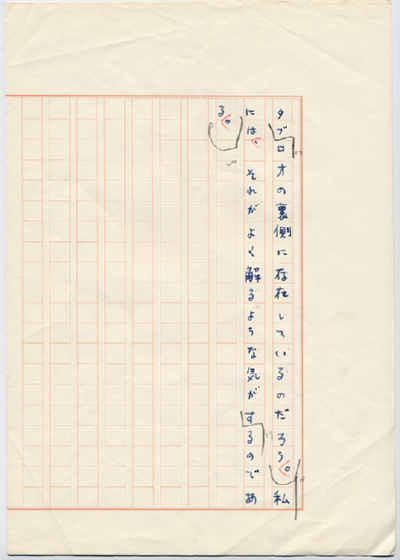 タブロオの裏側に存在しているのだろう。私
には、それがよく解るような気がするのであ
る。